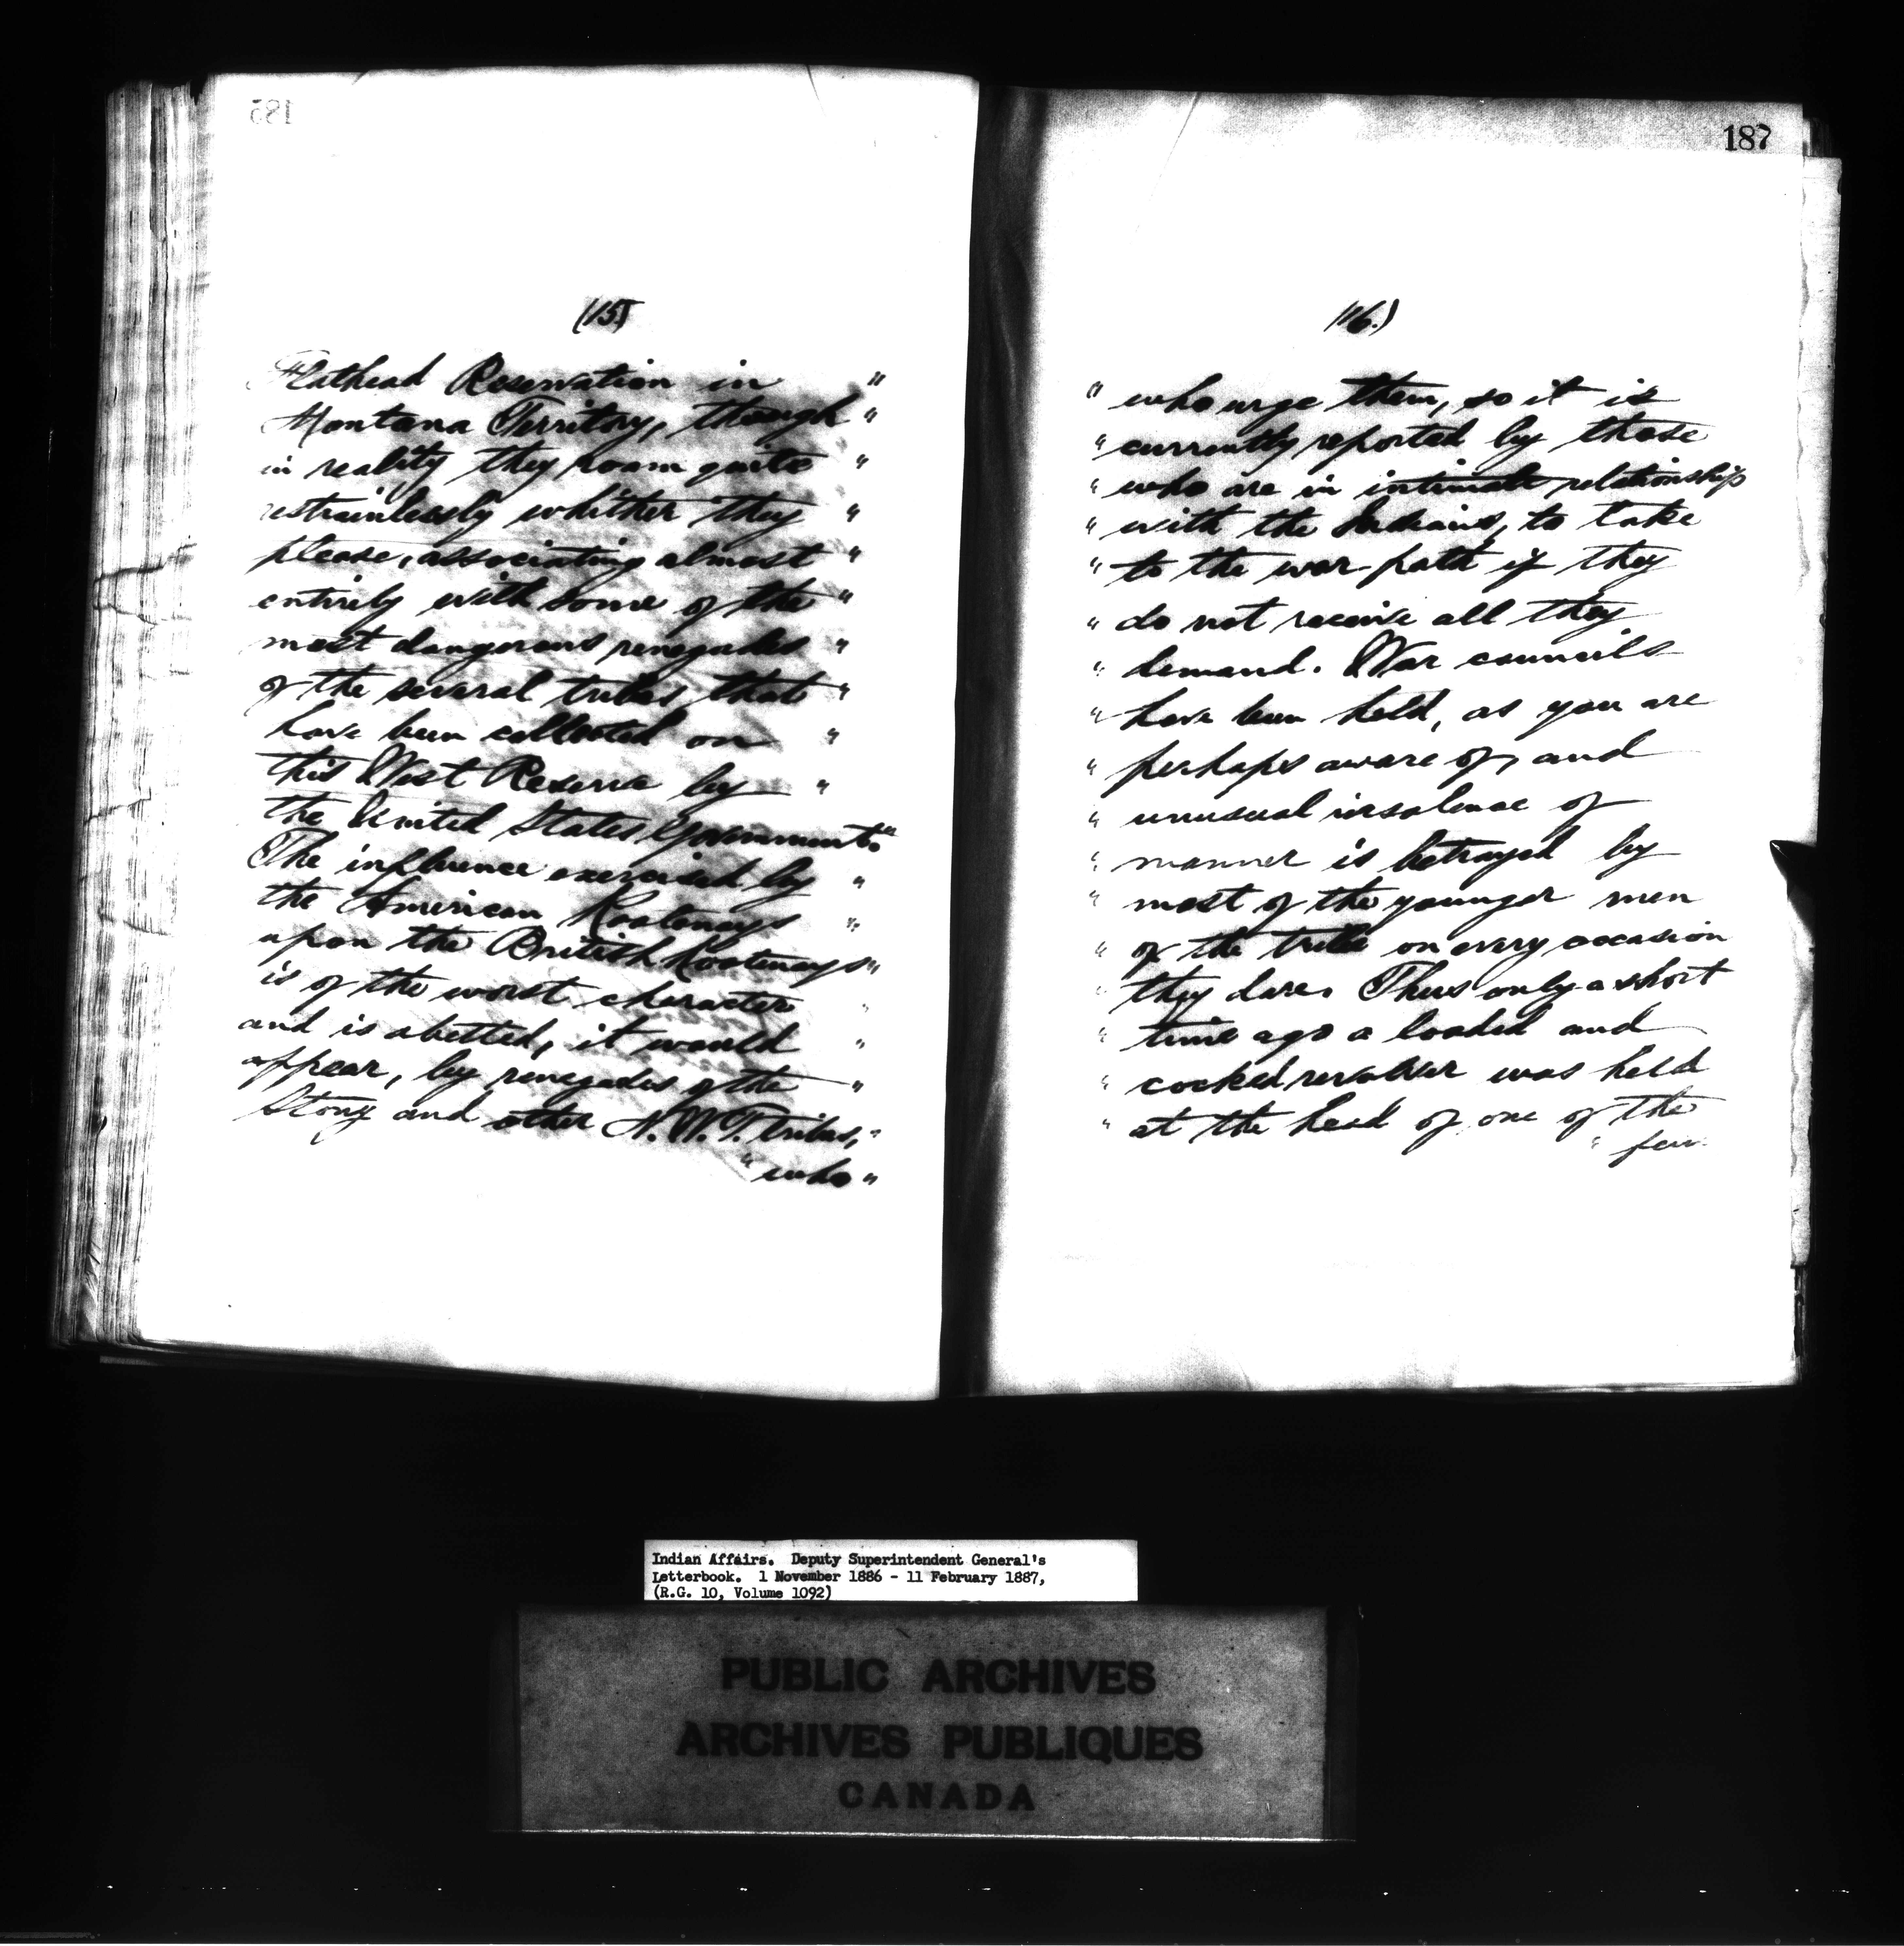 185
(15)
Flathead Reservation in "
Montana Territory, though "
in reality they roam quite "
restrainlessly whither they "
please, associating almost "
entirely with some of the "
most dangerous renegades "
of the several tribes that "
have been collected on "
this West Reserve by "
the United States Government. "
The influence exercised by "
the American Kootenays "
upon the British Kootenays "
is of the worst character "
and is abetted, it would "
appear, by renegades of the "
Stony and other N.W.T. tribes, "
" who "
187
(16.)
" who urge them, so it is
" currently reported by those
" who are in intimate relationship
" with the Indians, to take
" to the war path if they
" do not receive all they
" demand. War councils
" have been held, as you are
" perhaps aware of, and
" unusual insolence of
" manner is betrayed by
" most of the younger men
" of the tribe on every occasion
" they dare. Thus only a short
" time ago a loaded and
" cocked revolver was held
" at the head of one of the
" few
Indian Affairs. Deputy Superintendent General's
Letterbook. 1 November 1886 - 11 February 1887,
(R.G. 10, Volume 1092)
PUBLIC ARCHIVES
ARCHIVES PUBLIQUES
CANADA